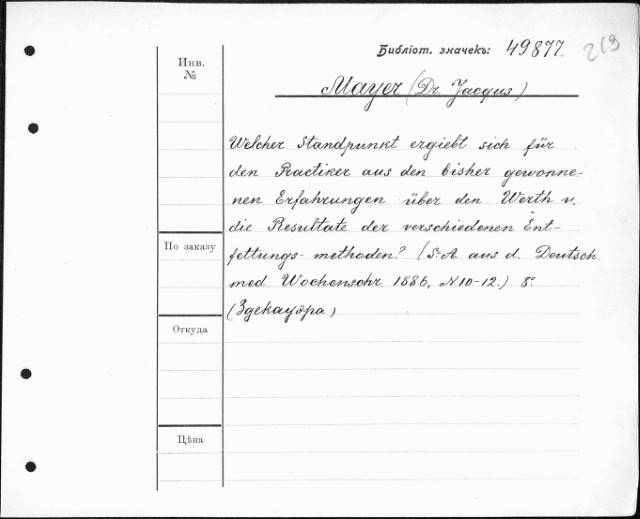 Библіот. значекъ: 49877. 219
Инв. №
Mayer (Dr. Jacqus)
Welcher Standpunkt ergiebt sich für
den Practiker aus den bisher gewonne-
nen Erfahrungen über den Werth u.
die Resultate der verschiedenen Ent-
fettungs-methoden? (S.-A. aus d. Deutsch.
med Wochenschr. 1886, N10-12.) 8°
(Здекауэра)
По заказу
Откуда
Цѣна